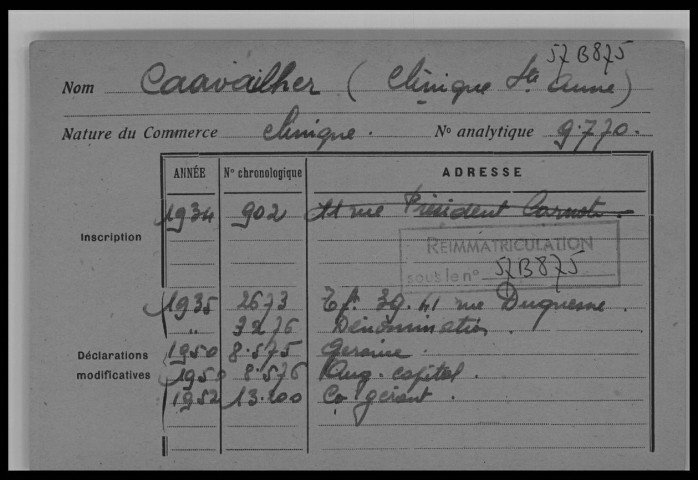 57B875
Nom Caavailher (Clinique Ste Anne)
Nature du Commerce clinique. No analytique 9.770.
ANNÉE No chronologique ADRESSE
Inscription 1934 902 11 rue Président Carnot.
REIMMATRICULATION
sous le no 57B875
1935 2673 Tft 39.41 rue Duquesne.
" 3276 Dénomination.
Déclarations modificatives
1950 8.575 Gérance.
1950 8.576 Aug. capital.
1952 13.100 Co gérant.